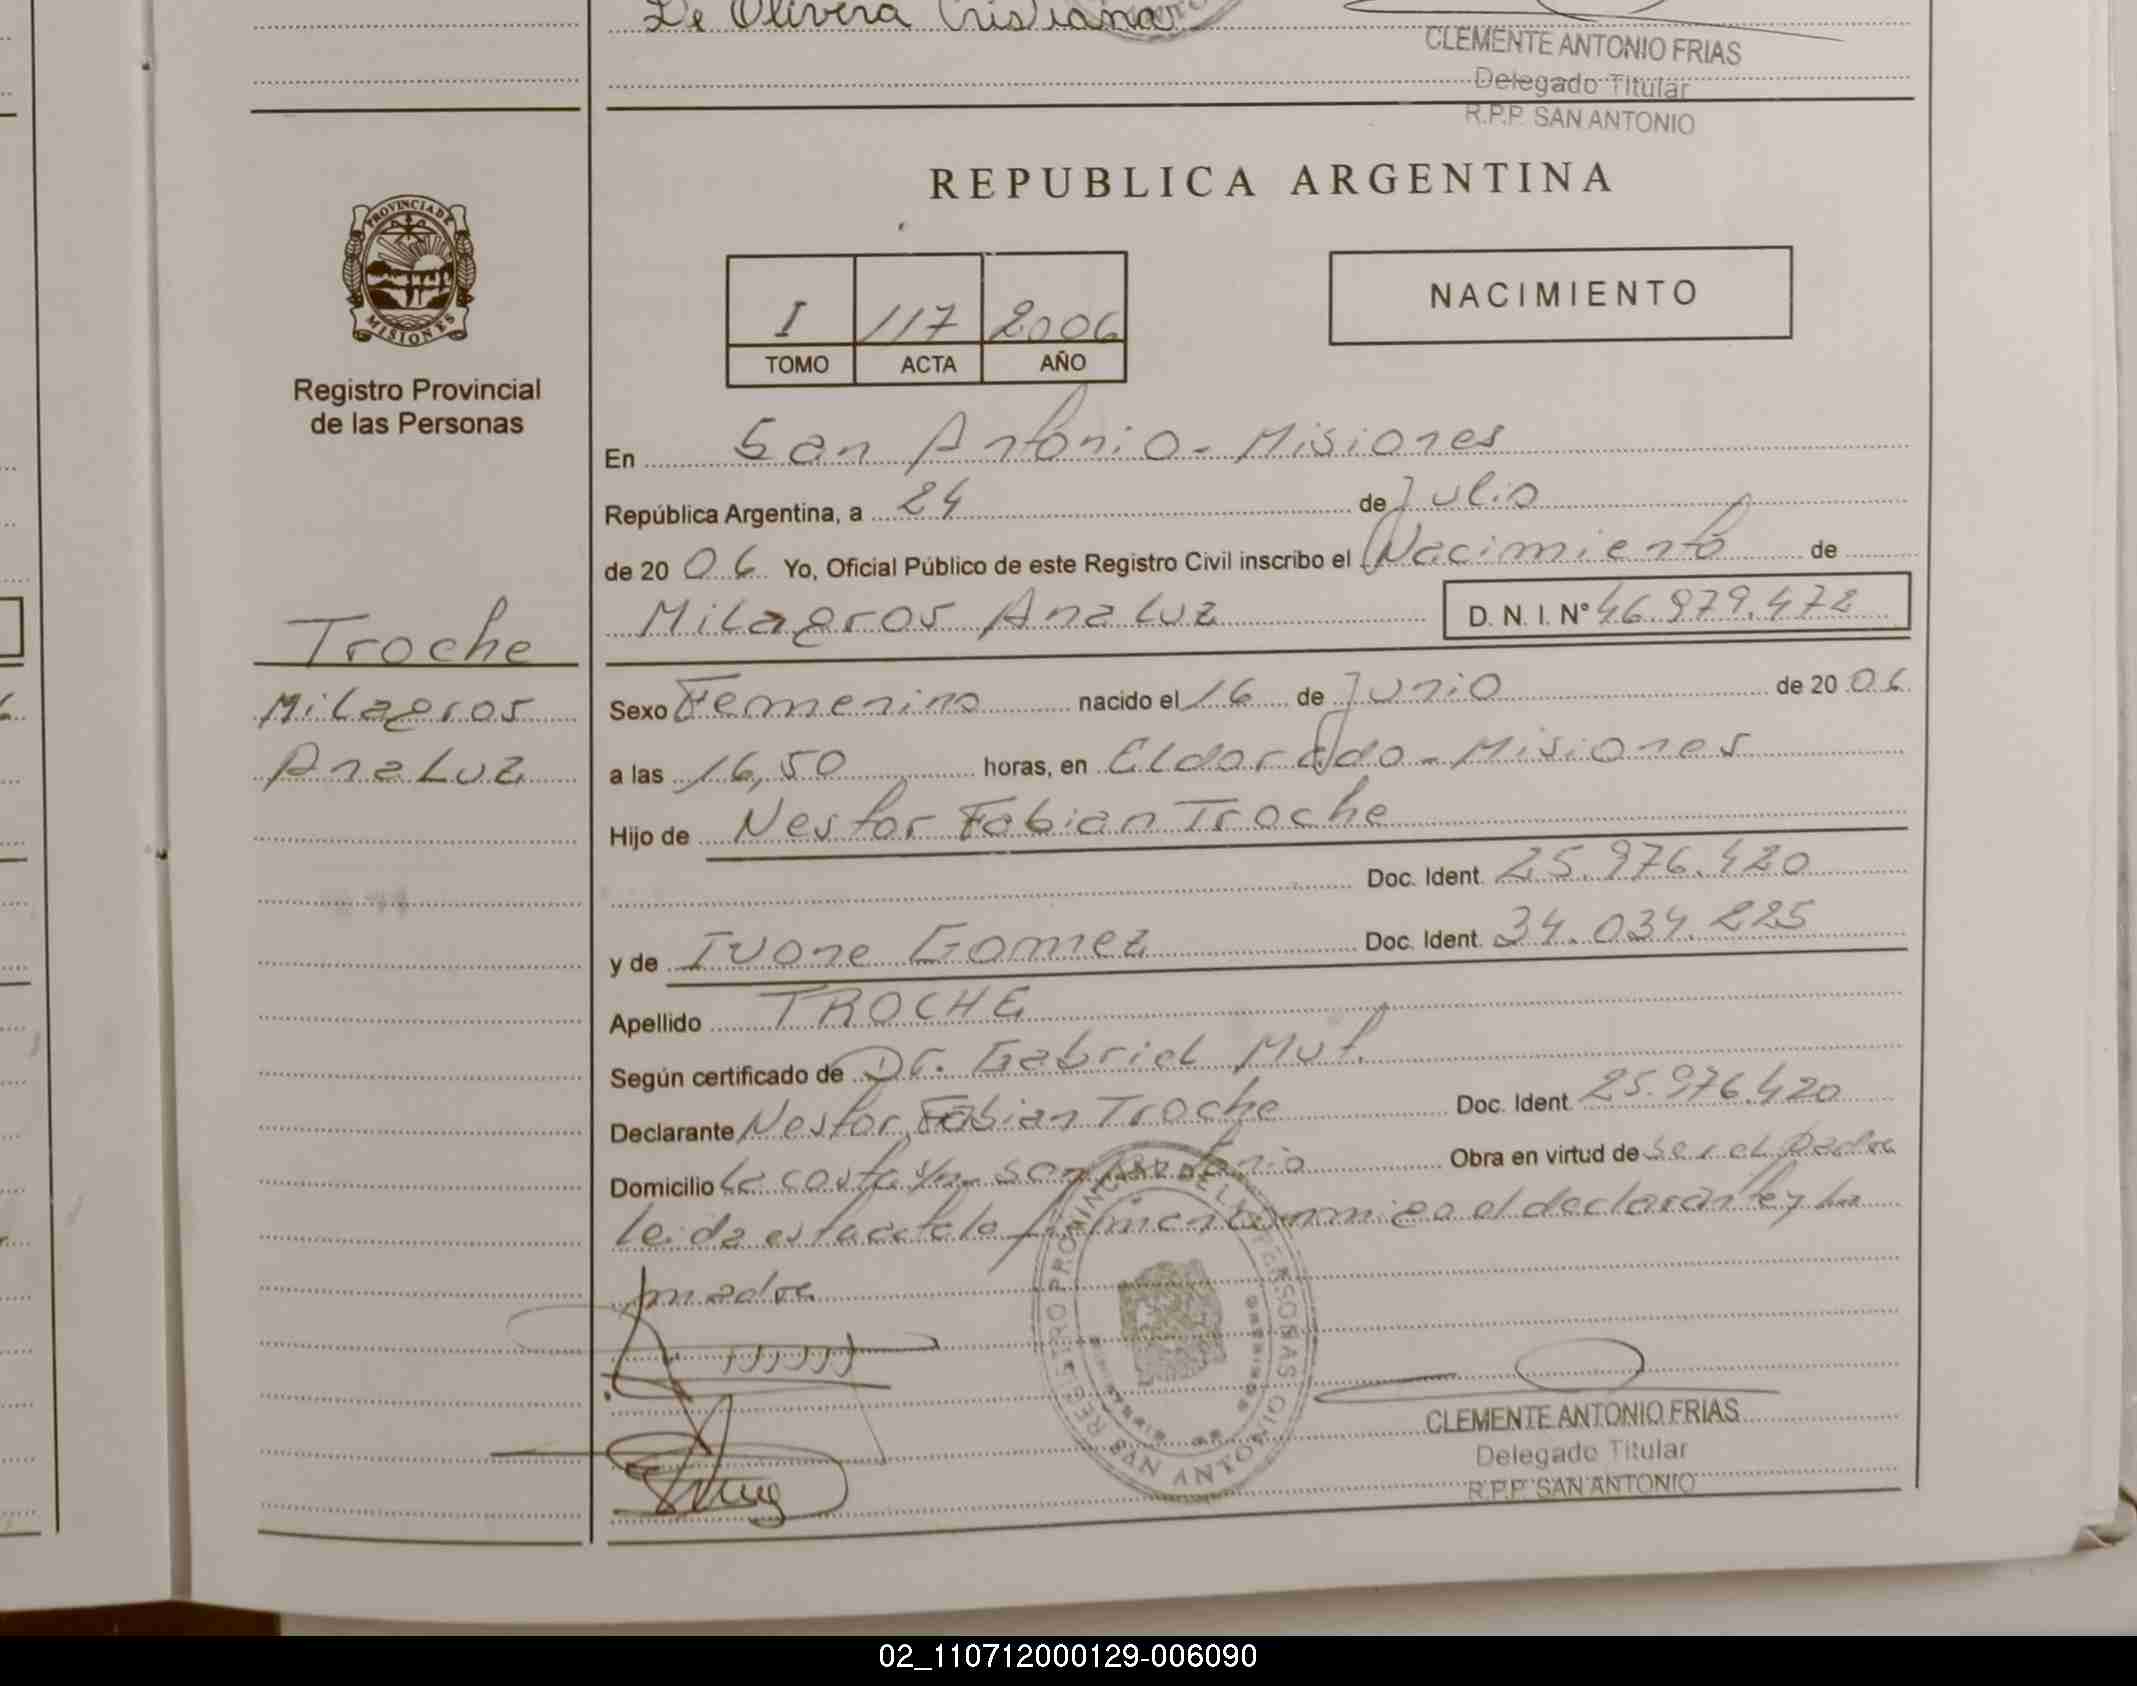 De Olivera Cristiana
CLEMENTE ANTONIO FRIAS
Delegado Titular
R.P.P. SAN ANTONIO
REPUBLICA ARGENTINA
PROVINCIA DE
MISIONES
Registro Provincial
de las Personas
I 117 2006
TOMO ACTA AÑO
NACIMIENTO
En San Antonio - Misiones
República Argentina, a 24 de Julio
de 20 06 Yo, Oficial Público de este Registro Civil inscribo el Nacimiento de
Milagros Analuz D. N. I. N° 46.979.472
Troche
Milagros
Analuz
Sexo Femenino nacido el 16 de Junio de 20 06
a las 16,50 horas, en Eldorado - Misiones
Hijo de Nestor Fabian Troche
Doc. Ident. 25.976.420
y de Ivone Gomez Doc. Ident. 34.034.225
Apellido TROCHE
Según certificado de Dr. Gabriel Mut.
Declarante Nestor Fabian Troche Doc. Ident. 25.976.420
Domicilio La costa s/n San Antonio Obra en virtud de ser el Padre
Leida esta acta la firman conmigo el declarante y la
madre
REGISTRO PROVINCIAL DE LAS PERSONAS
SAN ANTONIO
CLEMENTE ANTONIO FRIAS
Delegado Titular
R.P.P. SAN ANTONIO
02_110712000129-006090